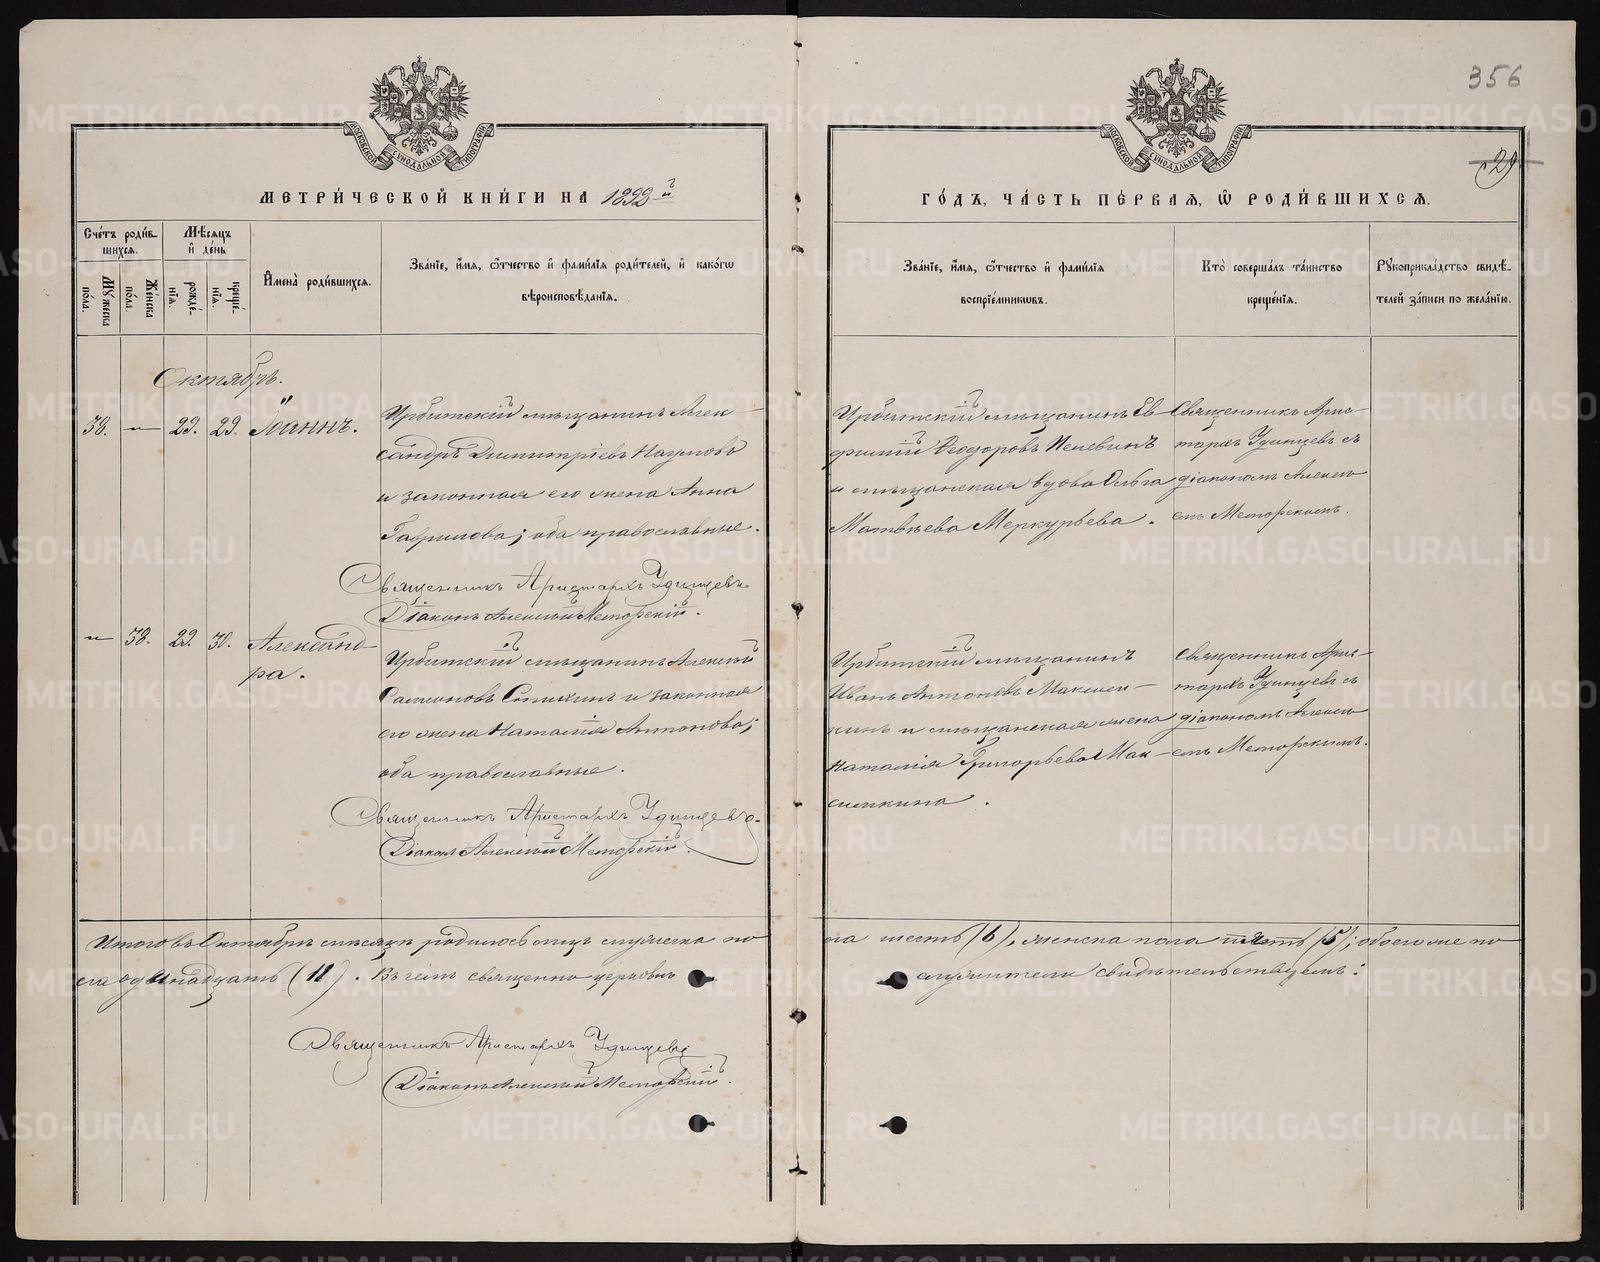 356
29
МОСКОВСКОЙ СУНОДАЛЬНОЙ ТИПОГРАФІИ
МОСКОВСКОЙ СУНОДАЛЬНОЙ ТИПОГРАФІИ
МЕТРИ́ЧЕСКОЙ КНИ́ГИ НА 1892-й
ГО́ДЪ, ЧА́СТЬ ПЕ́РВАЯ, Ѡ҆ РОДИ́ВШИХСЯ.
Сче́тъ роди́в-
шихся.
Му́жеска по́ла.
Же́нска по́ла.
Мѣ́сяцъ
и҆ де́нь
рожде́-
нїя.
креще́-
нїя.
И҆мена̀ роди́вшихся.
Зва́нїе, и҆́мя, ѻ҆́тчество и҆ фами́лїя роди́телей, и҆ како́гѡ
вѣроисповѣ́данїя.
Зва́нїе, и҆́мя, ѻ҆́тчество и҆ фами́лїя
воспрїе́мниковъ.
Кто̀ соверша́лъ та́инство
креще́нїя.
Рꙋкоприкла́дство свидѣ́-
телей за́писи по жела́нїю.
Октябрь.
38. — 29. 29. Іоаннъ.
Ирбитскій мѣщанинъ Алек-
сандръ Димитріевъ Наумовъ
и законная его жена Анна
Гаврилова; оба православные.
Священникъ Аристархъ Удинцевъ
Діаконъ Алексѣй Меторскій.
Ирбитскій мѣщанинъ Ев-
фимій Ѳеодоровъ Пеневинъ
и мѣщанская вдова Ольга
Матвѣева Меркурьева.
Священникъ Арис-
тархъ Удинцевъ съ
діакономъ Алексѣ-
емъ Меторскимъ.
— 38. 29. 30. Александ-
ра.
Ирбитскій мѣщанинъ Алексѣй
Самсоновъ и законная
его жена Наталія Антонова;
оба православные.
Священникъ Аристархъ Удинцевъ
Діаконъ Алексѣй Меторскій.
Ирбитскій мѣщанинъ
Иванъ Антоновъ Максим-
кинъ и мѣщанская жена
Наталія Григорьева Мак-
симкина.
Священникъ Арис-
тархъ Удинцевъ съ
діакономъ Алексѣ-
емъ Меторскимъ.
Итого въ Октябрѣ мѣсяцѣ родилось лицъ мужеска по-
ла шесть (6), женска пола пять (5); обоего же по-
ла одинадцать (11). Въ чемъ священно церковно
служители свидѣтельствуемъ:
Священникъ Аристархъ Удинцевъ
Діаконъ Алексѣй Меторскій.
METRIKI.GASO-URAL.RU